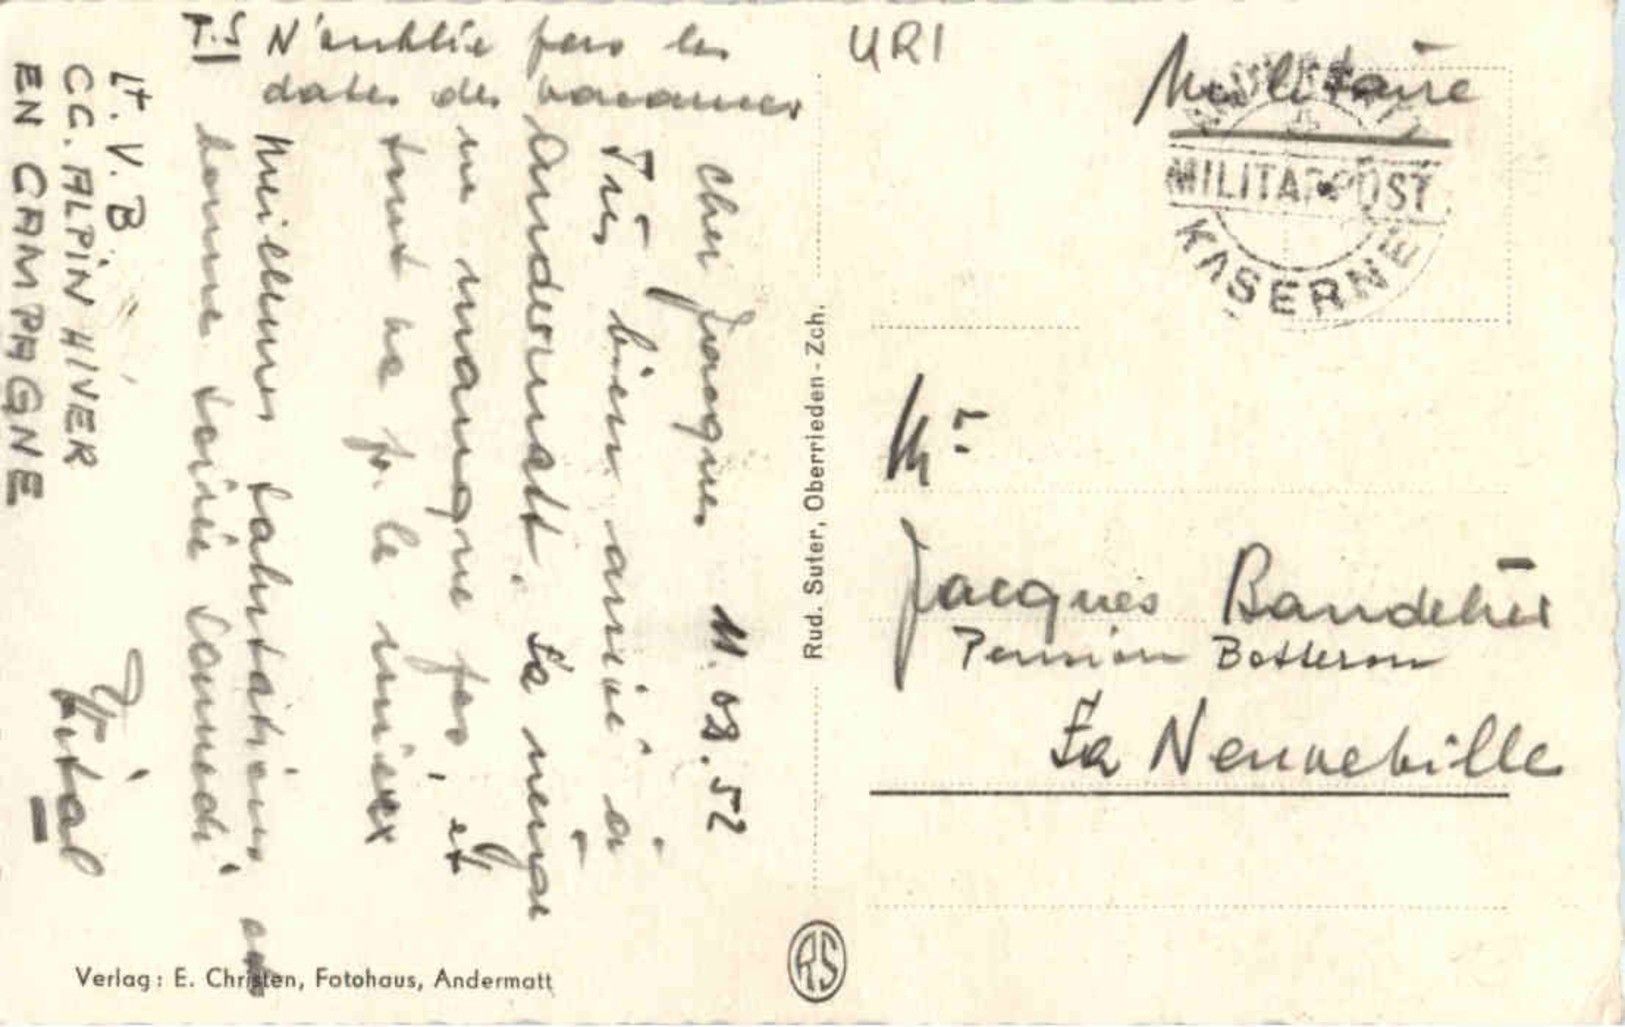 P.S N'oublie pas les
dates des vacances
11.03.52
Cher Jacques
Très bien arrivé à
Andermatt. La neige
ne manque pas, et
tout va p. le mieux
Meilleures salutations et
bonne soirée samedi
Vital
Lt. V. B.
CC. ALPIN HIVER
EN CAMPAGNE
Verlag: E. Christen, Fotohaus, Andermatt
Rud. Suter, Oberrieden-Zch.
RS
URI
Militaire
MILITARPOST
KASERNE
Mr
Jacques Bandelier
Pension Botteron
La Neuveville